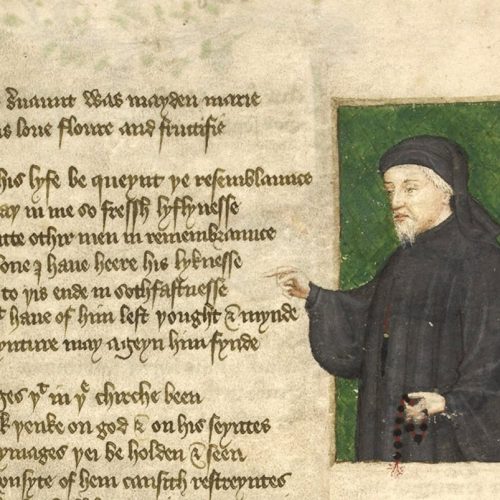 s̃uaunt was mayden marie
s loue floure and fructifie
his lyfe be queynt þe resemblaunce
ay in me so fressh lyflynesse
tte othir men in remembraunce
sone I haue heere his lyknesse
to þis ende in sothfastnesse
t haue of him left þought & mynde
ynture may ageyn him fynde
ges þt in þe chirche been
k þenke on god & on his seyntes
ymages þei be holden & seen
onsyte of hem causith restreyntes